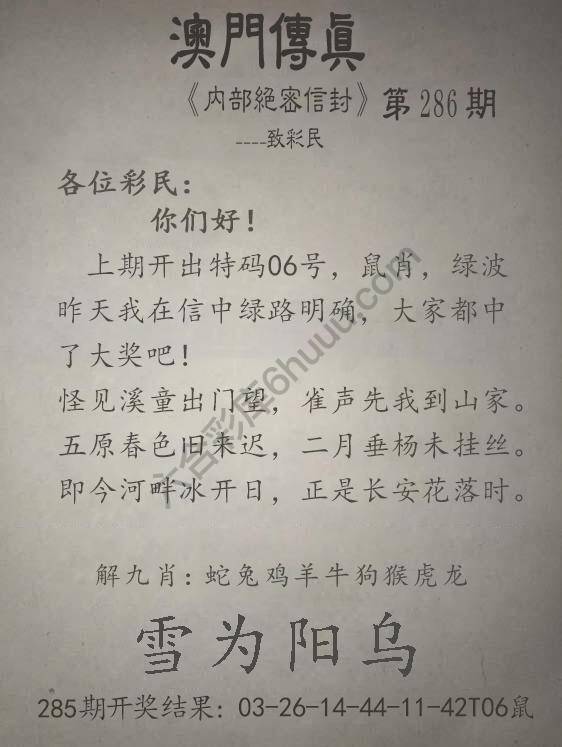 澳門傳眞
《内部絕密信封》第286期
----致彩民
各位彩民：
你们好！
上期开出特码06号，鼠肖，绿波
昨天我在信中绿路明确，大家都中
了大奖吧！
怪见溪童出门望，雀声先我到山家。
五原春色旧来迟，二月垂杨未挂丝。
即今河畔冰开日，正是长安花落时。
解九肖：蛇兔鸡羊牛狗猴虎龙
雪为阳乌
285期开奖结果：03-26-14-44-11-42T06鼠
六合彩库6huuu.com